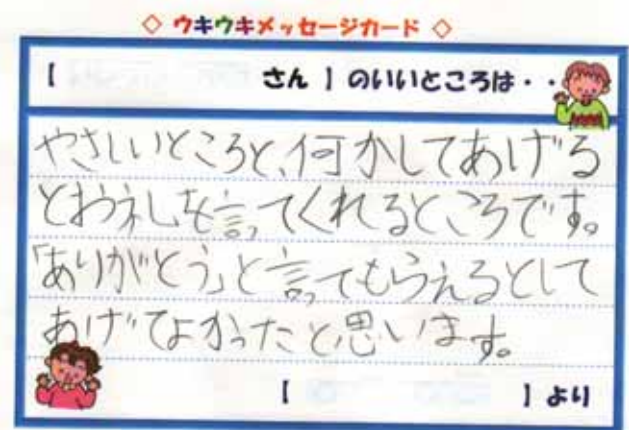 ◇ ウキウキメッセージカード ◇
【 さん 】のいいところは・・
やさしいところと、何かしてあげる
とお礼を言ってくれるところです。
「ありがとう」と言ってもらえるとして
あげてよかったと思います。
【 】より